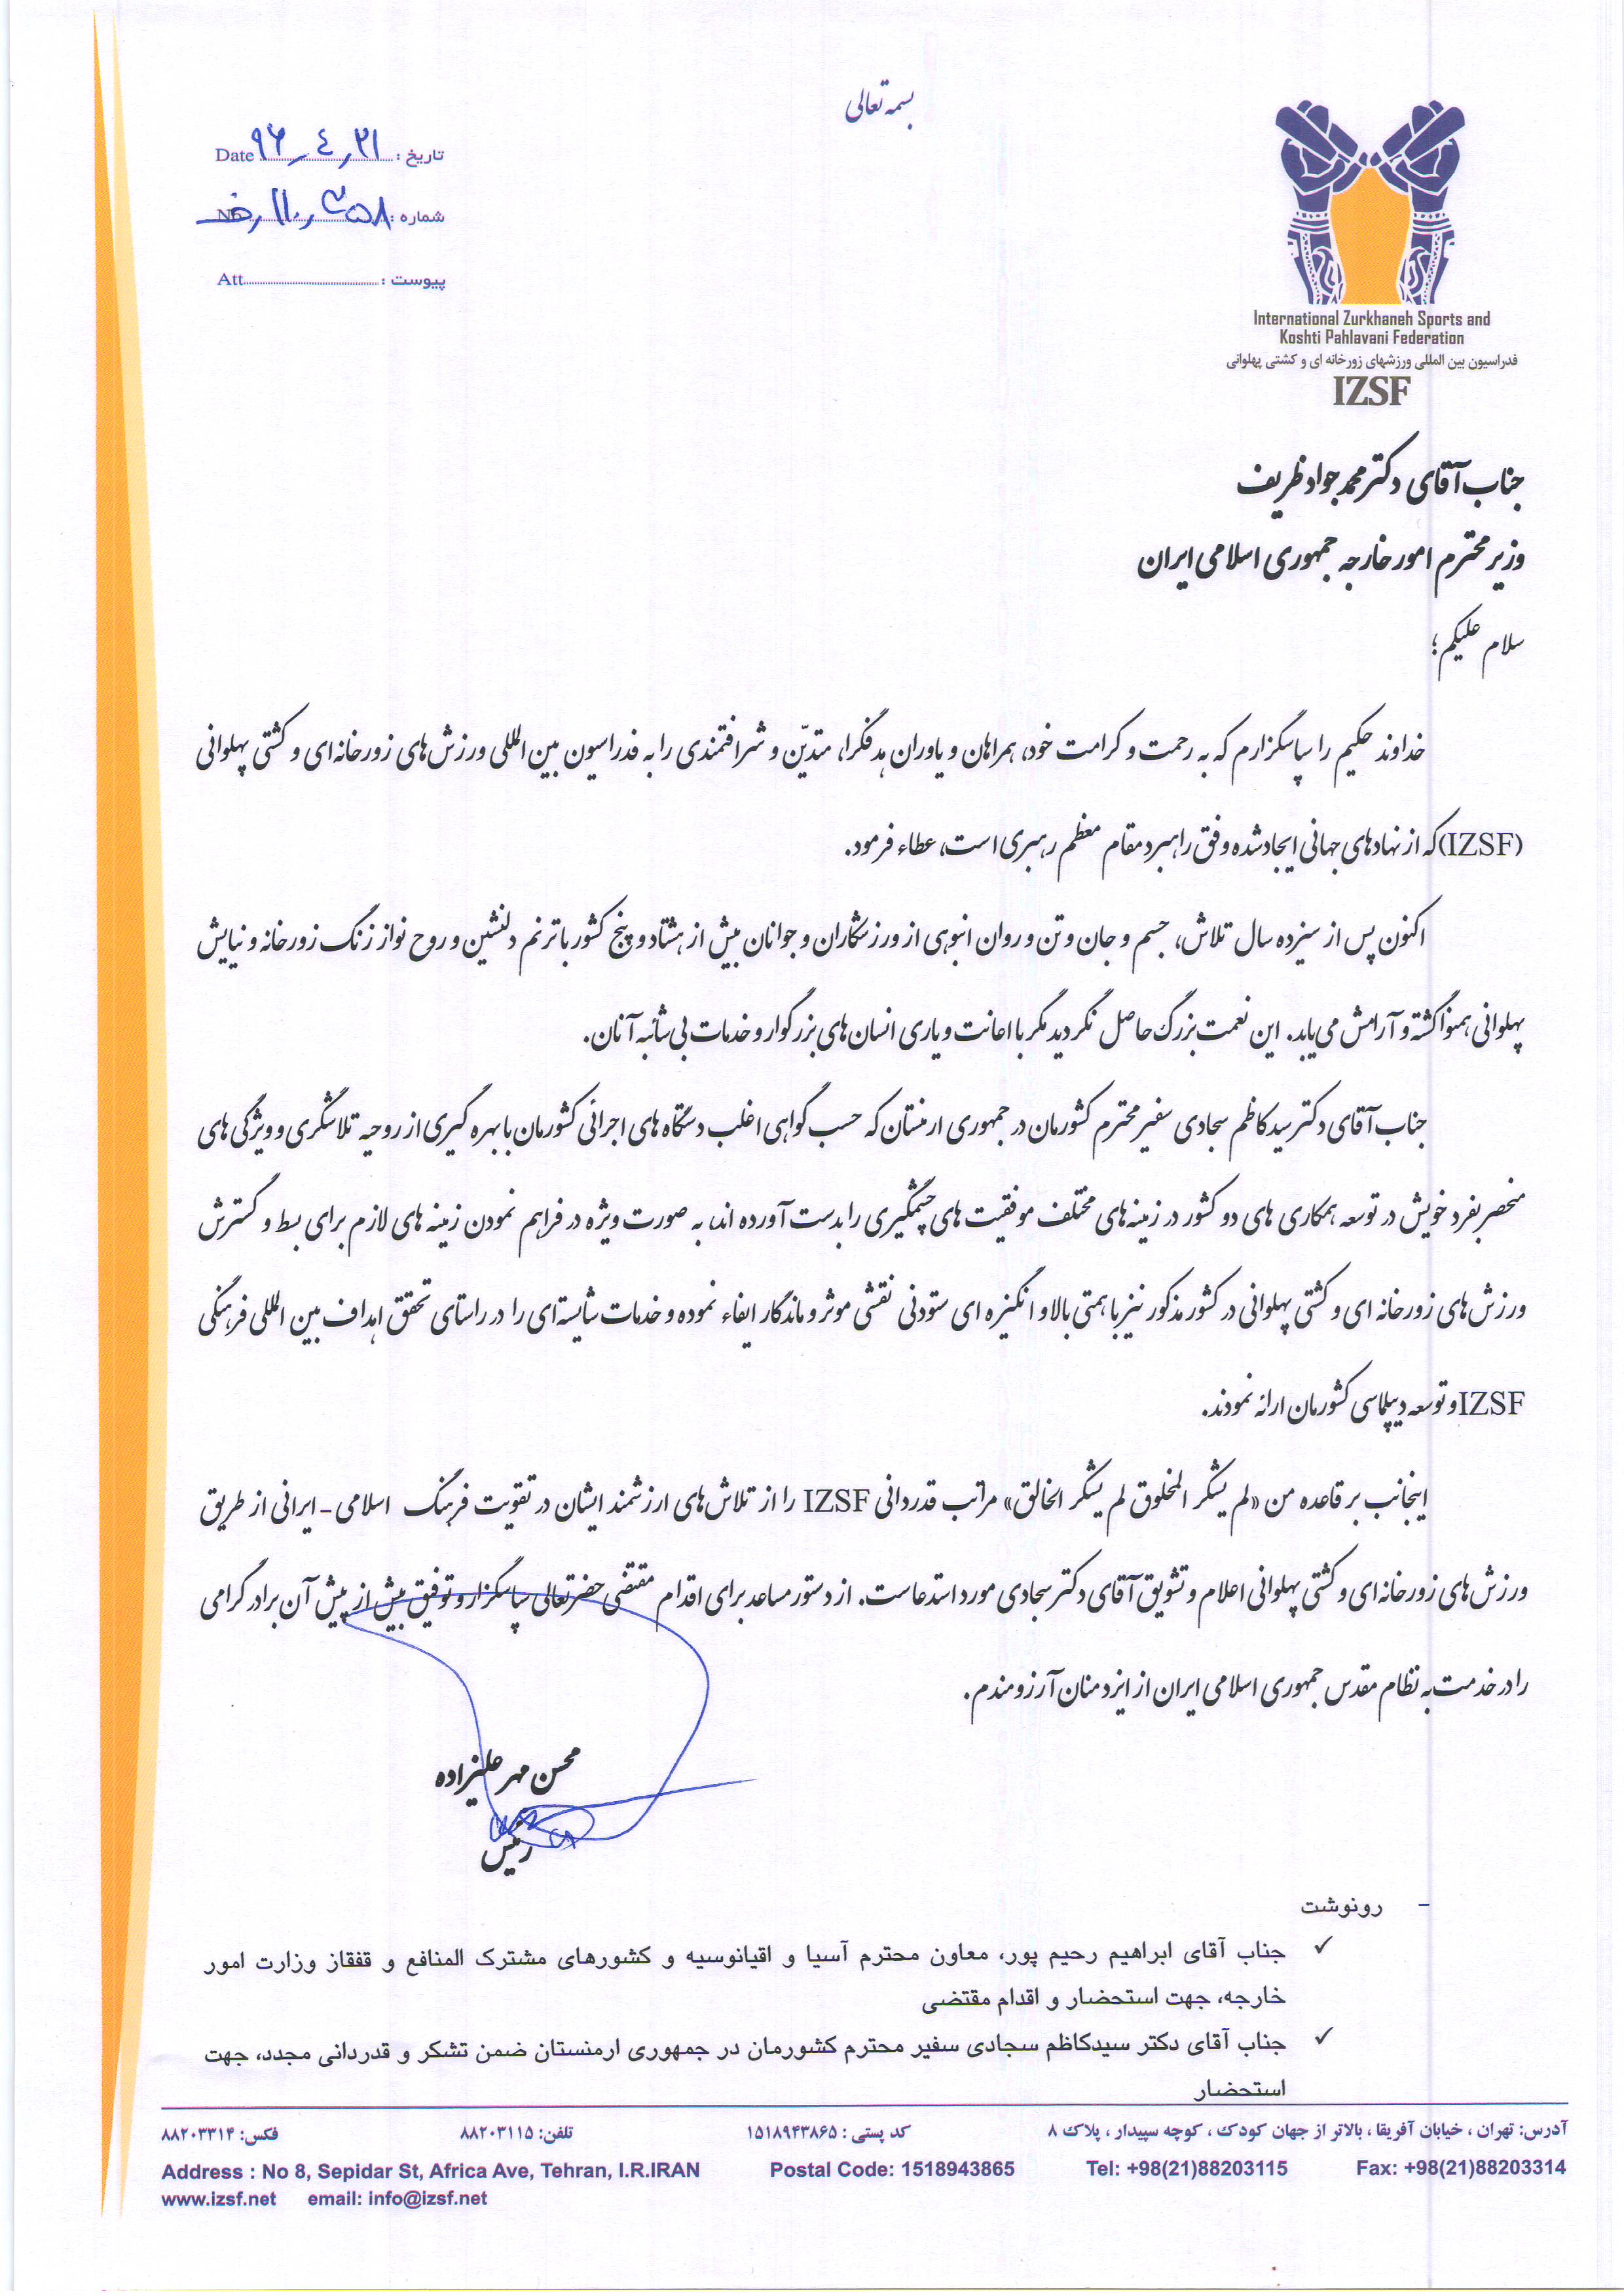 بسمه تعالی
تاریخ : ۹۶٫۴٫۲۱ Date
شماره : ۱۱۰٫۳۵۸٫ No
پیوست : Att
International Zurkhaneh Sports and
Koshti Pahlavani Federation
فدراسیون بین المللی ورزشهای زورخانه ای و کشتی پهلوانی
IZSF
جناب آقای دکتر محمد جواد ظریف
وزیر محترم امور خارجه جمهوری اسلامی ایران
سلام علیکم؛
خداوند حکیم را سپاسگزارم که به رحمت و کرامت خود، همراهان و یاوران هدفگرا، متدیّن و شرافتمندی را به فدراسیون بین المللی ورزش های زورخانه ای و کشتی پهلوانی
(IZSF)که از نهادهای جهانی ایجاد شده وفق راهبرد مقام معظم رهبری است، عطاء فرمود.
اکنون پس از سیزده سال تلاش، جسم و جان و تن و روان انبوهی از ورزشکاران و جوانان بیش از هشتاد و پنج کشور با ترنم دلنشین و روح نواز زنگ زورخانه و نیایش
پهلوانی همنوا گشته و آرامش می یابد. این نعمت بزرگ حاصل نگردید مگر با اعانت و یاری انسان های بزرگوار و خدمات بی شائبه آنان.
جناب آقای دکتر سید کاظم سجادی سفیر محترم کشورمان در جمهوری ارمنستان که حسب گواهی اغلب دستگاه های اجرائی کشورمان با بهره گیری از روحیه تلاشگری و ویژگی های
منحصر بفرد خویش در توسعه همکاری های دو کشور در زمینه های مختلف موفقیت های چشمگیری را بدست آورده اند، به صورت ویژه در فراهم نمودن زمینه های لازم برای بسط و گسترش
ورزش های زورخانه ای و کشتی پهلوانی در کشور مذکور نیز با همتی بالا و انگیزه ای ستودنی نقشی موثر و ماندگار ایفاء نموده و خدمات شایسته ای را در راستای تحقق اهداف بین المللی فرهنگی
IZSFو توسعه دیپلماسی کشورمان ارائه نمودند.
اینجانب بر قاعده من «لم یشکر المخلوق لم یشکر الخالق» مراتب قدردانی IZSF را از تلاش های ارزشمند ایشان در تقویت فرهنگ اسلامی - ایرانی از طریق
ورزش های زورخانه ای و کشتی پهلوانی اعلام و تشویق آقای دکتر سجادی مورد استدعاست. از دستور مساعد برای اقدام مقتضی حضرتعالی سپاسگزار و توفیق بیش از پیش آن برادر گرامی
را در خدمت به نظام مقدس جمهوری اسلامی ایران از ایزد منان آرزومندم.
محسن مهر علیزاده
رئیس
- رونوشت
✓ جناب آقای ابراهیم رحیم پور، معاون محترم آسیا و اقیانوسیه و کشورهای مشترک المنافع و قفقاز وزارت امور
خارجه، جهت استحضار و اقدام مقتضی
✓ جناب آقای دکتر سیدکاظم سجادی سفیر محترم کشورمان در جمهوری ارمنستان ضمن تشکر و قدردانی مجدد، جهت
استحضار
آدرس: تهران ، خیابان آفریقا ، بالاتر از جهان کودک ، کوچه سپیدار ، پلاک ۸ کد پستی : ۱۵۱۸۹۴۳۸۶۵ تلفن: ۸۸۲۰۳۱۱۵ فکس: ۸۸۲۰۳۳۱۴
Address : No 8, Sepidar St, Africa Ave, Tehran, I.R.IRAN Postal Code: 1518943865 Tel: +98(21)88203115 Fax: +98(21)88203314
www.izsf.net email: info@izsf.net